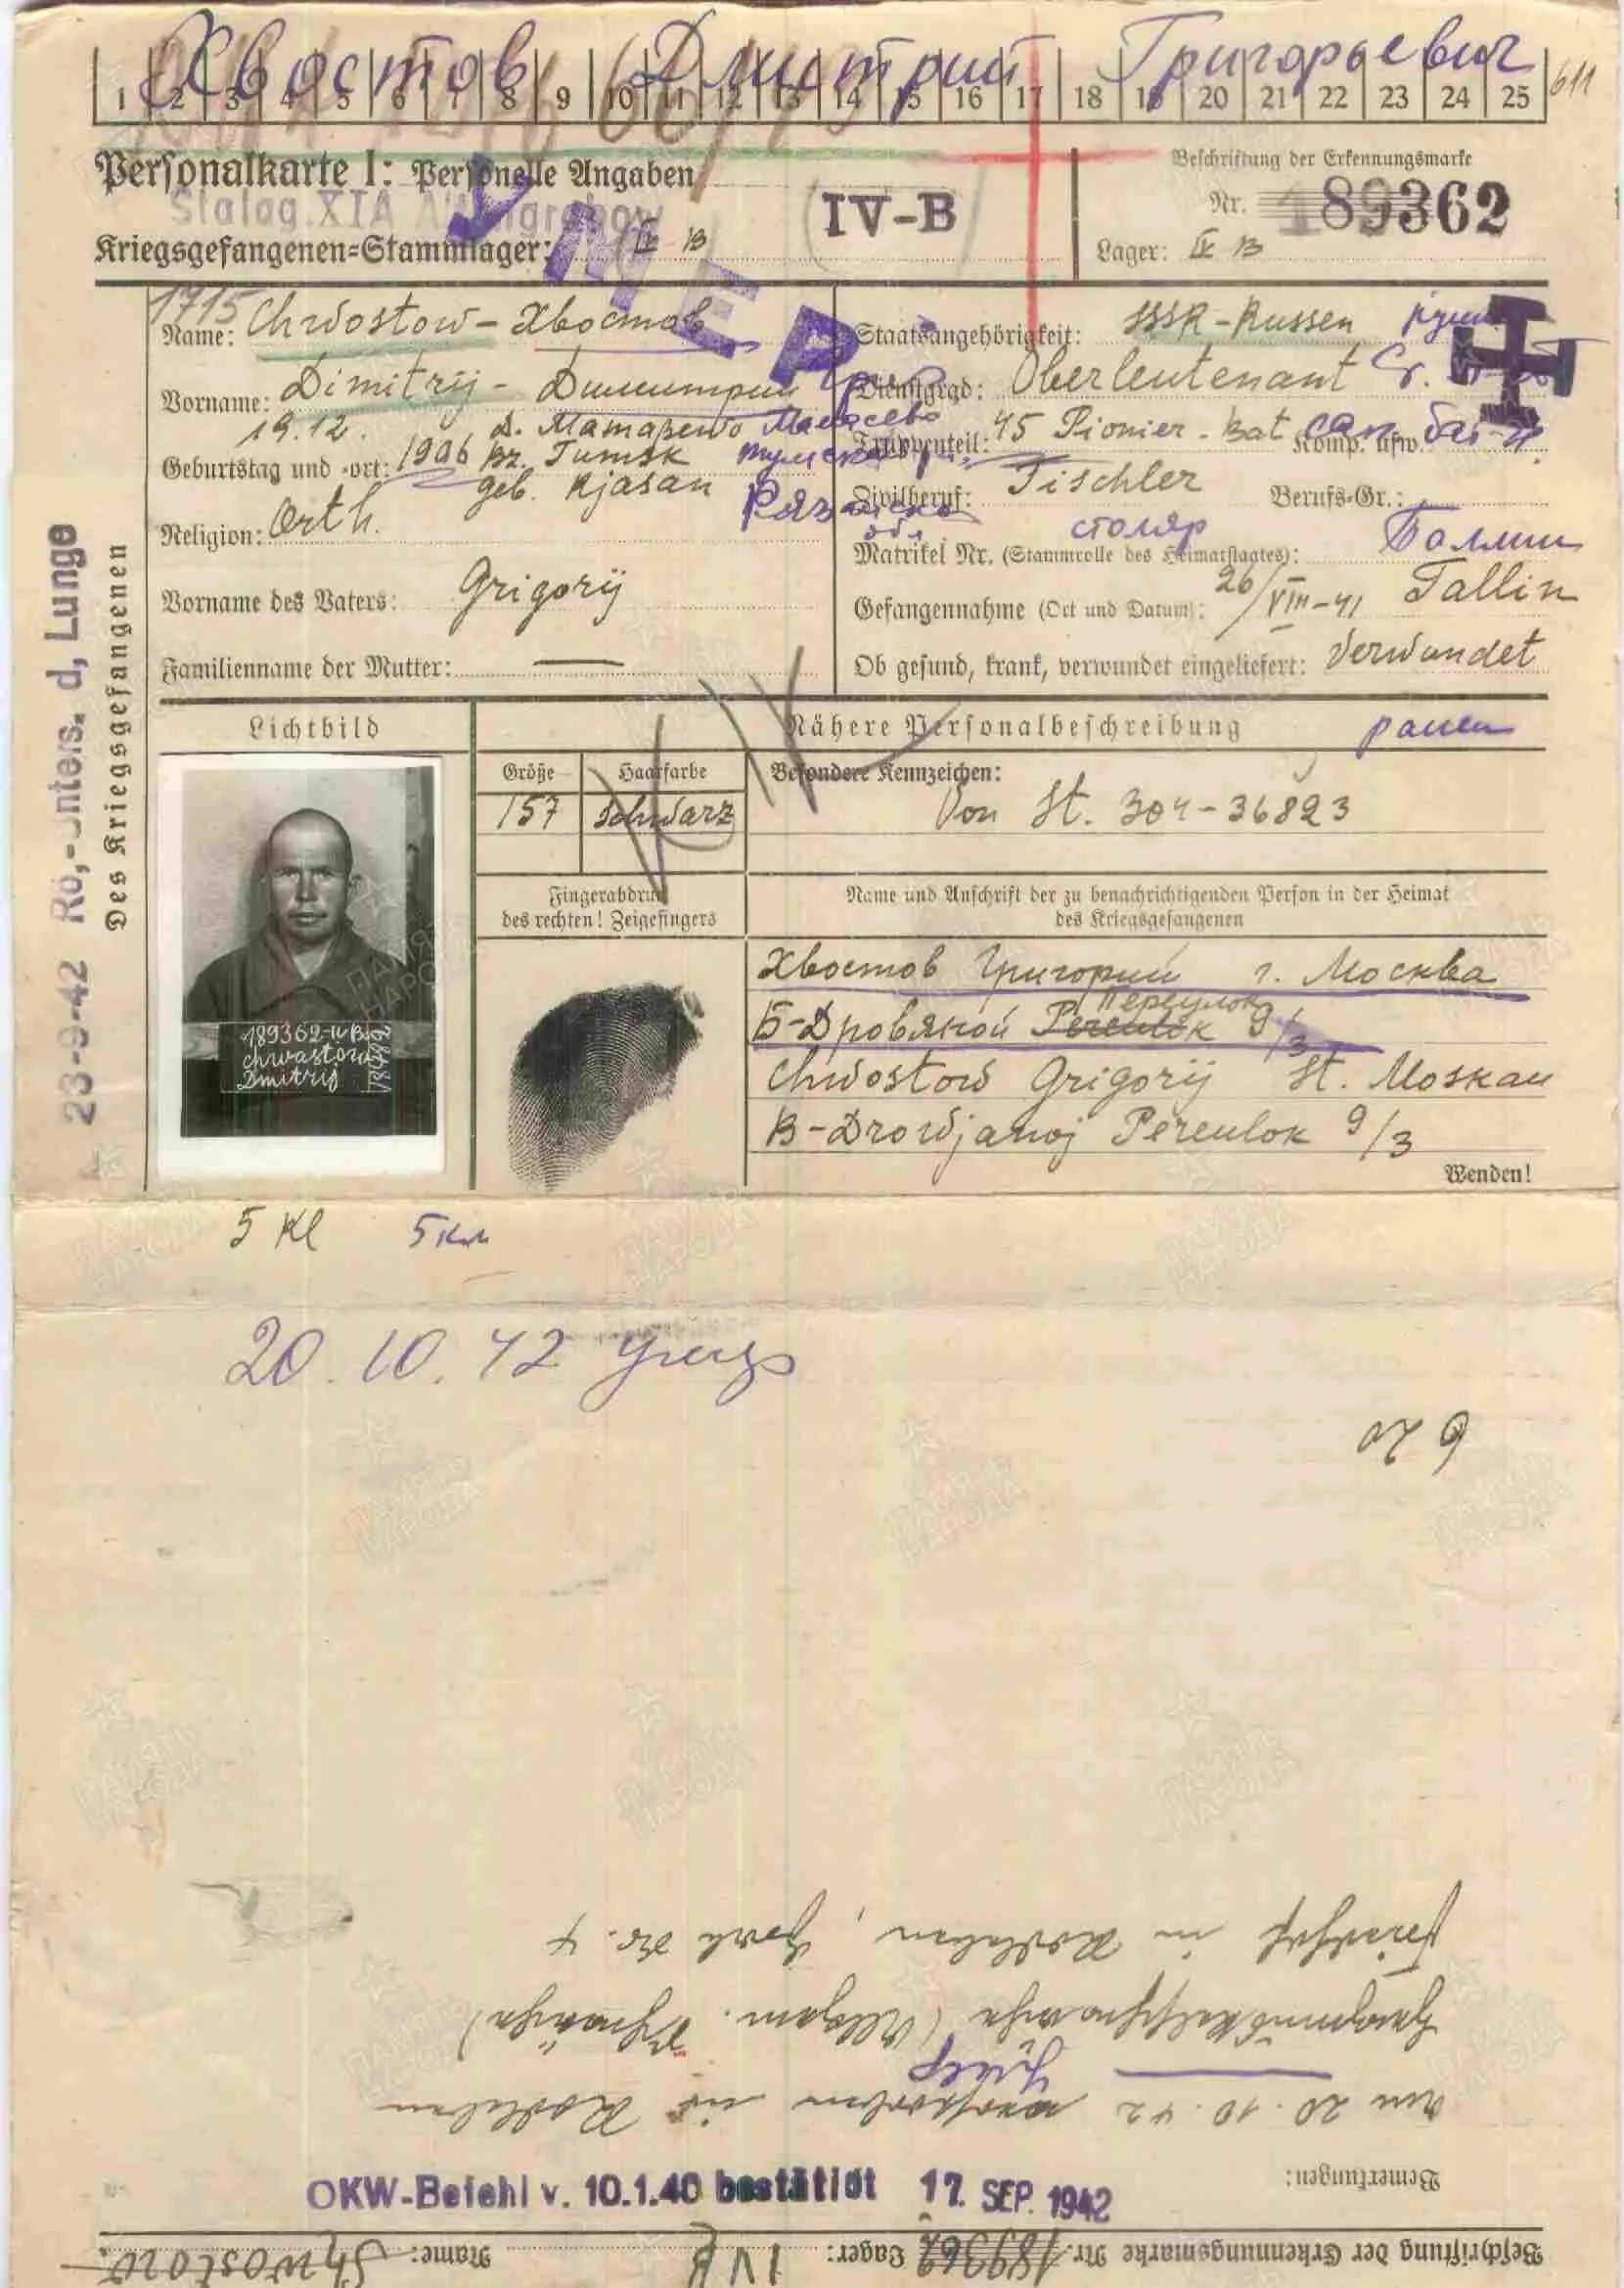 Хвостов Дмитрий Григорьевич
1 2 3 4 5 6 7 8 9 10 11 12 13 14 15 16 17 18 19 20 21 22 23 24 25 611
Personalkarte I: Personelle Angaben
Beschriftung der Erkennungsmarke
Stalag XIA Altengrabow
IV-B
Nr. 189362
Kriegsgefangenen=Stammlager: IV B
Lager: IV B
УМЕР
1715
Name: Chwostow - Хвостов
Staatsangehörigkeit: SSSR - Russen
Vorname: Dimitrij - Димитрий
Dienstgrad: Oberleutenant
19.12. д. Матарено
Truppenteil: 45 Pionier-Bat Komp. usw. сап. бат-н
Geburtstag und -ort: 1906 Bz. Tumsk
geb. Rjasan
Рязанск обл.
Zivilberuf: Tischler
Berufs-Gr.:
столяр
Religion: Orth.
Matrikel Nr. (Stammrolle des Heimatstaates):
Таллин
Vorname des Vaters: Grigorij
Gefangennahme (Ort und Datum): 26/VIII-41 Tallin
Familienname der Mutter: —
Ob gesund, krank, verwundet eingeliefert: verwundet
ранен
23-9-42 Rö,-Unters. d, Lunge
Des Kriegsgefangenen
Lichtbild
Nähere Personalbeschreibung
Größe Haarfarbe
157 schwarz
Besondere Kennzeichen:
Von St. 304-36823
Fingerabdruck
des rechten! Zeigefingers
Name und Anschrift der zu benachrichtigenden Person in der Heimat
des Kriegsgefangenen
Хвостов Григорий г. Москва
Переулок
Б-Дровяной Pereulok 9/3
Chwostow Grigorij St. Moskau
B-Drowjanoj Pereulok 9/3
189362-IV B
Chwastow
Dmitrij
Wenden!
5 Kl 5 кл
20.10.42
Friedhof in
умер
den 20.10.42 verstorben in
Bemerkungen:
OKW-Befehl v. 10.1.40 bestätigt 17. SEP. 1942
Beschriftung der Erkennungsmarke Nr. 189362 Lager: IV B Name: Chwostow.